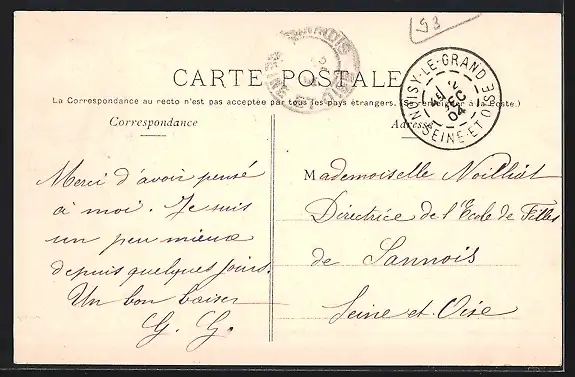 93
CARTE POSTALE
La Correspondance au recto n'est pas acceptée par tous les pays étrangers. (Se renseigner à la Poste.)
Correspondance
Adresse
NOISY-LE-GRAND
DEC
04
SEINE-ET-OISE
Merci d'avoir pensé
à moi. Je suis
un peu mieux
depuis quelques jours.
Un bon baiser
G. G.
Mademoiselle Noilliat
Directrice de l'École de Filles
de Sannois
Seine et Oise